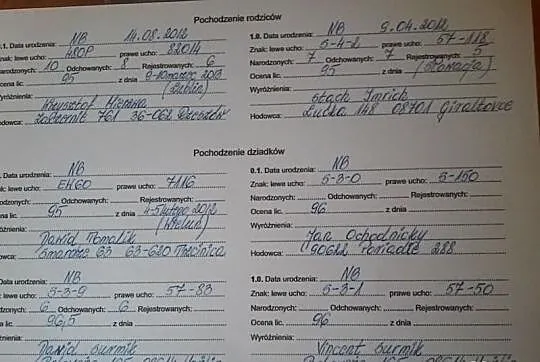 Pochodzenie rodziców
NB
0.1. Data urodzenia: 14.08.2012
Znak: lewe ucho: 480P prawe ucho: 82014
Narodzonych: 10 Odchowanych: 8 Rejestrowanych: 6
Ocena lic. 95 z dnia 9-10 marzec 2013
Wyróżnienia: (Lublin)
Krzysztof
Hodowca: 761 36-062
NB
1.0. Data urodzenia: 9.04.2012
Znak: lewe ucho: 5-4-2 prawe ucho: 57-118
Narodzonych: 7 Odchowanych: 7 Rejestrowanych: 5
Ocena lic. 95 z dnia (Słowacja)
Wyróżnienia:
Stach Imrich
Hodowca: Lucka 148 08701 Giraltovce
Pochodzenie dziadków
NB
Data urodzenia:
Znak: lewe ucho: EH60 prawe ucho: 7116
Odchowanych: Rejestrowanych:
lic. 95 z dnia 4-5 lutego 2012
(Wieluń)
Dawid Tomalik
63 63-620 Trzcinica
NB
0.1. Data urodzenia:
Znak: lewe ucho: 5-3-0 prawe ucho: 5-150
Narodzonych: Odchowanych: Rejestrowanych:
Ocena lic. 96 z dnia
Wyróżnienia:
Jan Ochodnicky
Hodowca: 90622 288
NB
Data urodzenia:
lewe ucho: 5-3-9 prawe ucho: 57-83
6 Odchowanych: 6 Rejestrowanych:
lic. 96,5 z dnia
Dawid Surmik
NB
1.0. Data urodzenia:
Znak: lewe ucho: 5-3-1 prawe ucho: 57-50
Narodzonych: Odchowanych: Rejestrowanych:
Ocena lic. 96 z dnia
Wyróżnienia:
Vincent Surmik